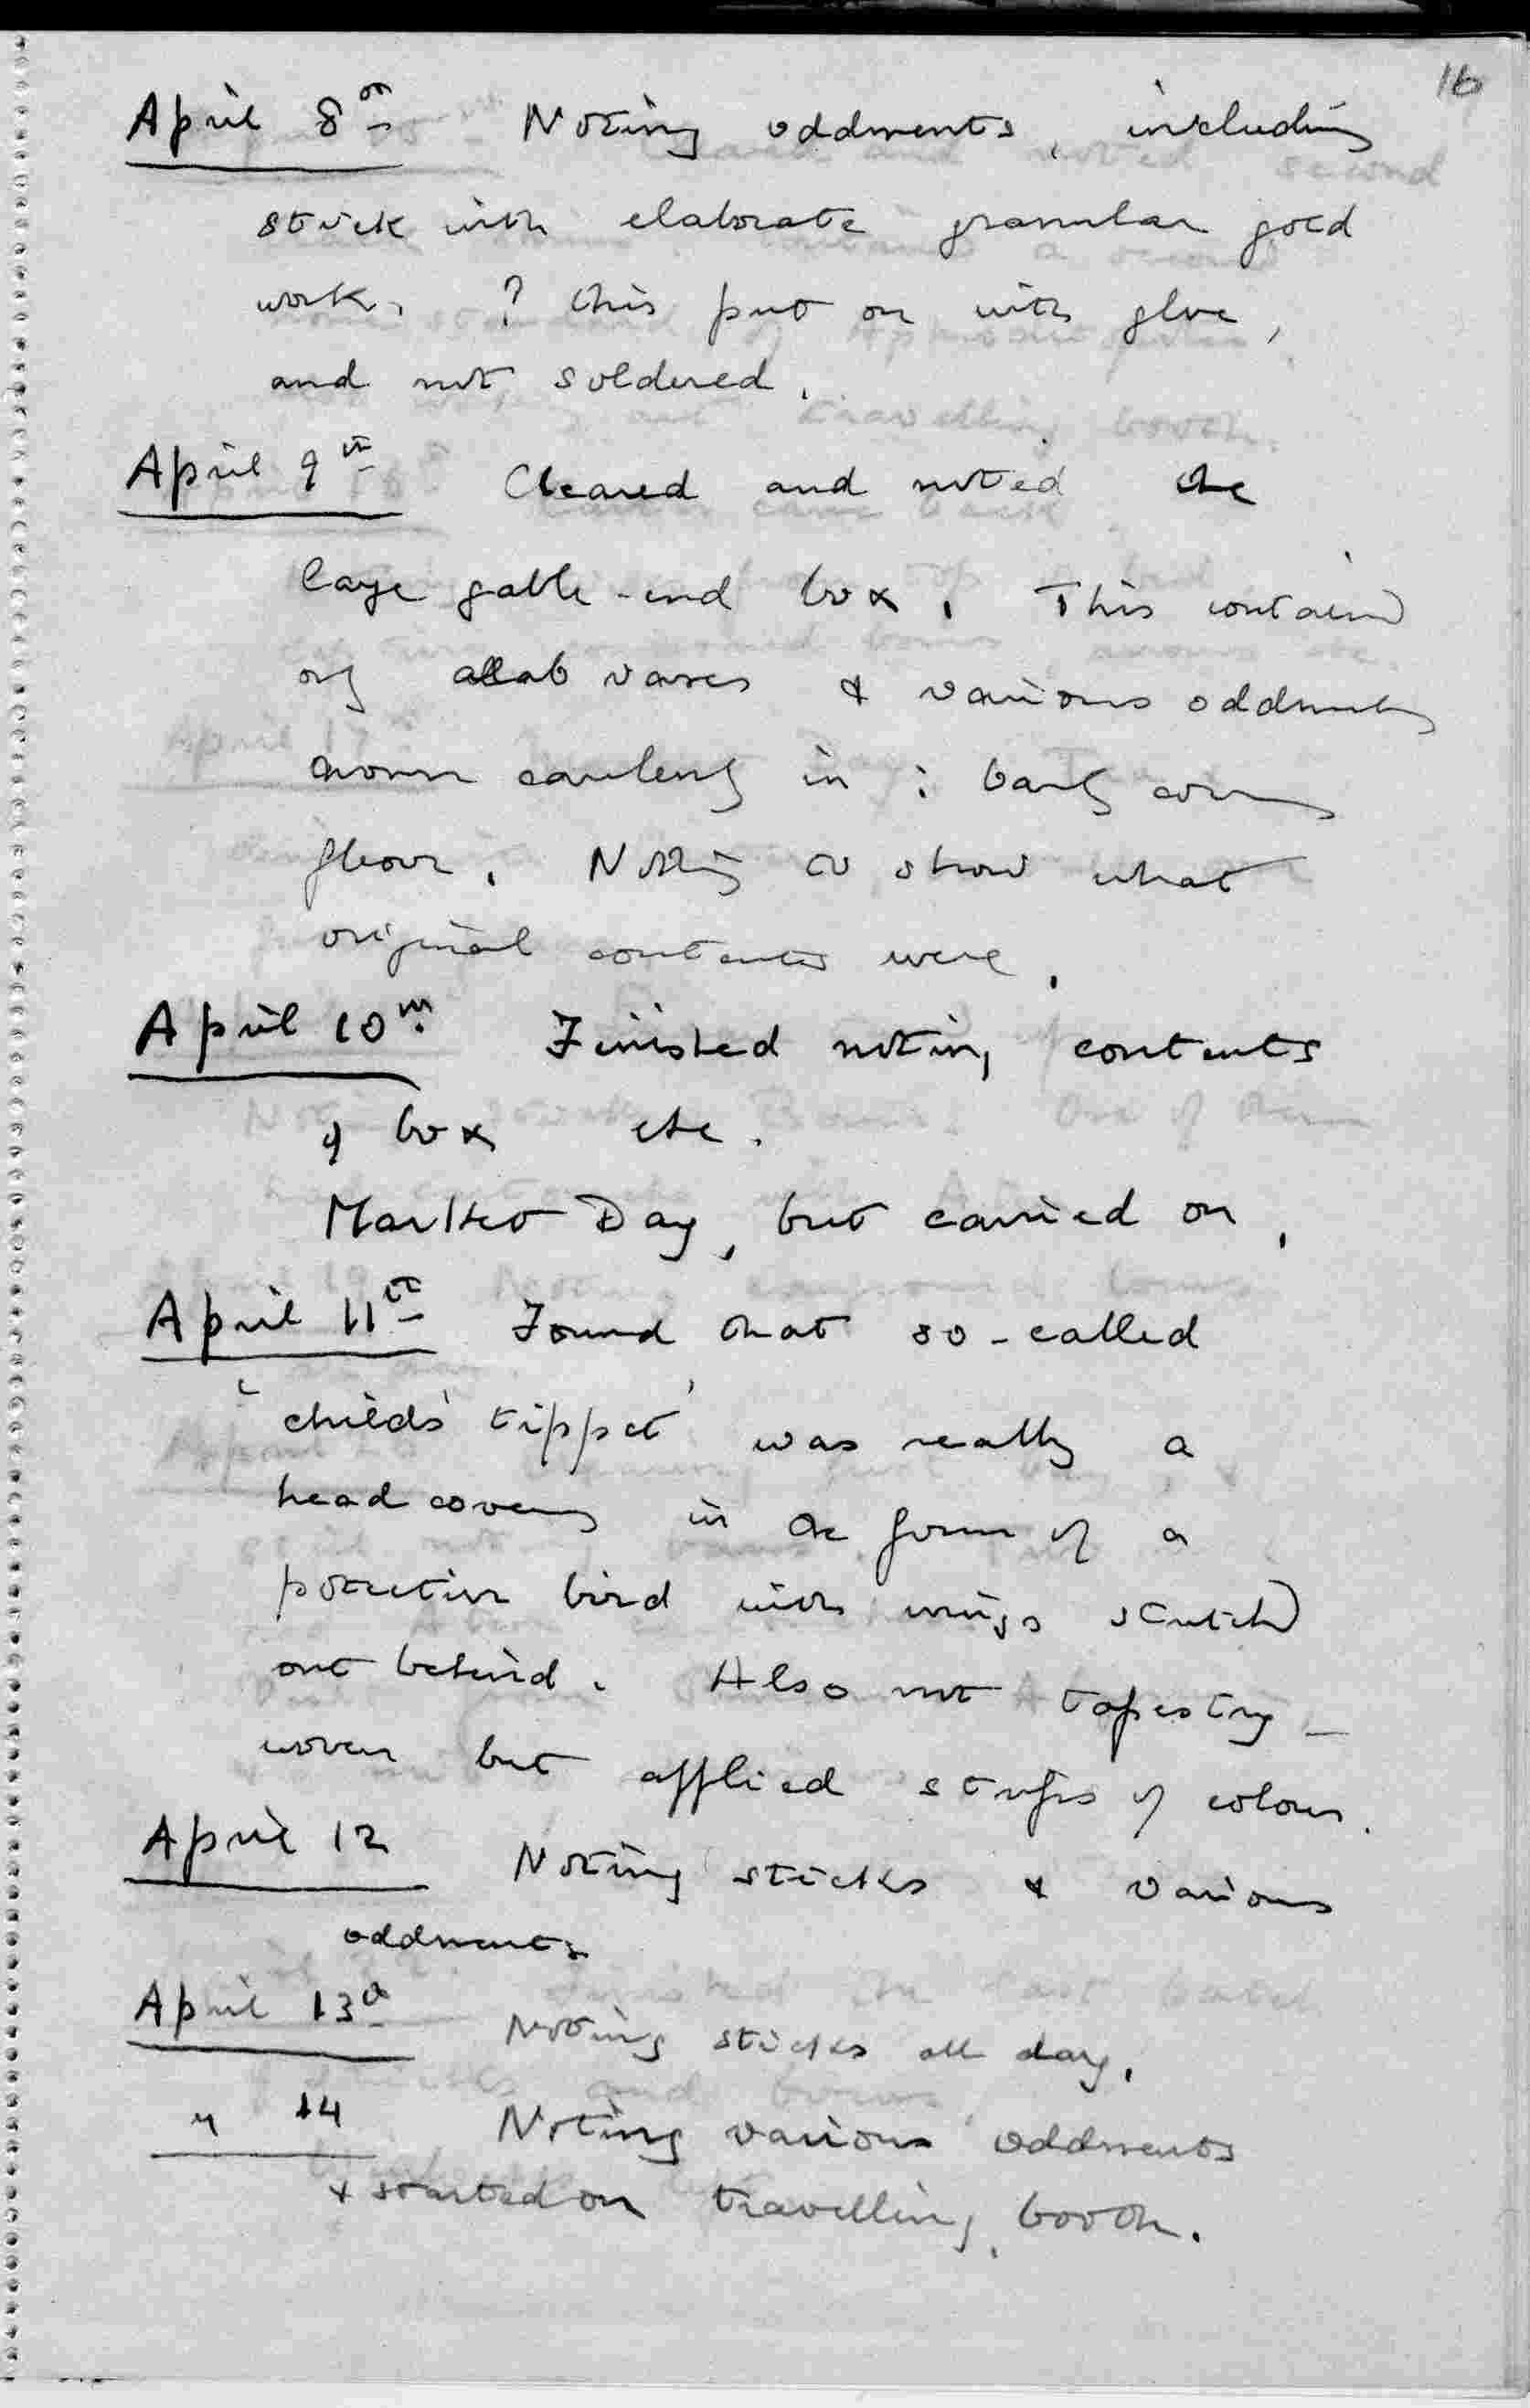 16
April 8th Noting oddments, including
stick with elaborate granular gold
work. ? this put on with glue,
and not soldered.
April 9th Cleared and noted the
large gable-end box. This contained
only alab vases & various oddments
thrown carelessly in : barley corn
flour. Nothing to show what
original contents were.
April 10th Finished noting contents
of box etc.
Market Day, but carried on.
April 11th Found that so-called
'child's tippet' was really a
head covering in the form of a
protective bird with wings stretched
out behind. Also not tapestry-
woven but applied strips of colour.
April 12 Noting sticks & various
oddments.
April 13th Noting sticks all day.
" 14 Noting various oddments
& started on travelling booth.